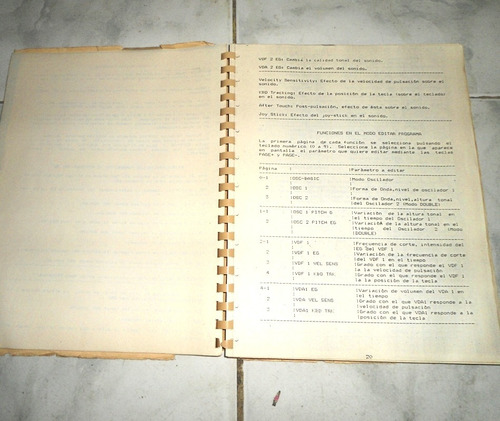 VDF 2 EG: Cambia la calidad tonal del sonido.
VDA 2 EG: Cambia el volumen del sonido.
Velocity Sensitivity: Efecto de la velocidad de pulsación sobre el
sonido.
KBD Tracking: Efecto de la posición de la tecla (sobre el teclado)
en el sonido.
After Touch: Post-pulsación, efecto de ésta sobre el sonido.
Joy Stick: Efecto del joy-stick en el sonido.
FUNCIONES EN EL MODO EDITAR PROGRAMA
La primera página de cada función se selecciona pulsando el
teclado numérico (0 a 9). Selecciona la página en la que aparece
en pantalla el parámetro que quiere editar mediante las teclas
PAGE+ y PAGE-.
Página | |Parámetro a editar
0-1 |OSC-BASIC |Modo Oscilador
2 |OSC 1 |Forma de Onda,nivel de oscilador 1
3 |OSC 2 |Forma de Onda,nivel,altura tonal
|del Oscilador 2 (Modo DOUBLE)
1-1 |OSC 1 PITCH EG |Variación de la altura tonal en
|el tiempo del Oscilador 1
2 |OSC 2 PITCH EG |Variación de la altura tonal en el
|tiempo del Oscilador 2 (Modo
|DOUBLE)
2-1 |VDF 1 |Frecuencia de corte, intensidad del
|EG del VDF 1
2 |VDF 1 EG |Variación de la frecuencia de corte
|del VDF 1 en el tiempo
3 |VDF 1 VEL SENS |Grado con el que responde el VDF 1
|a la velocidad de pulsación
4 |VDF 1 KBD TRK |Grado con el que responde el VDF 1
|a la posición de la tecla
|VDA1 EG |Variación de volumen del VDA 1 en
|el tiempo
2 |VDA VEL SENS |Grado con el que VDA1 responde a la
|velocidad de pulsación
3 |VDA1 KBD TRK |Grado con el que VDA1 responde a la
|posición de la tecla
20